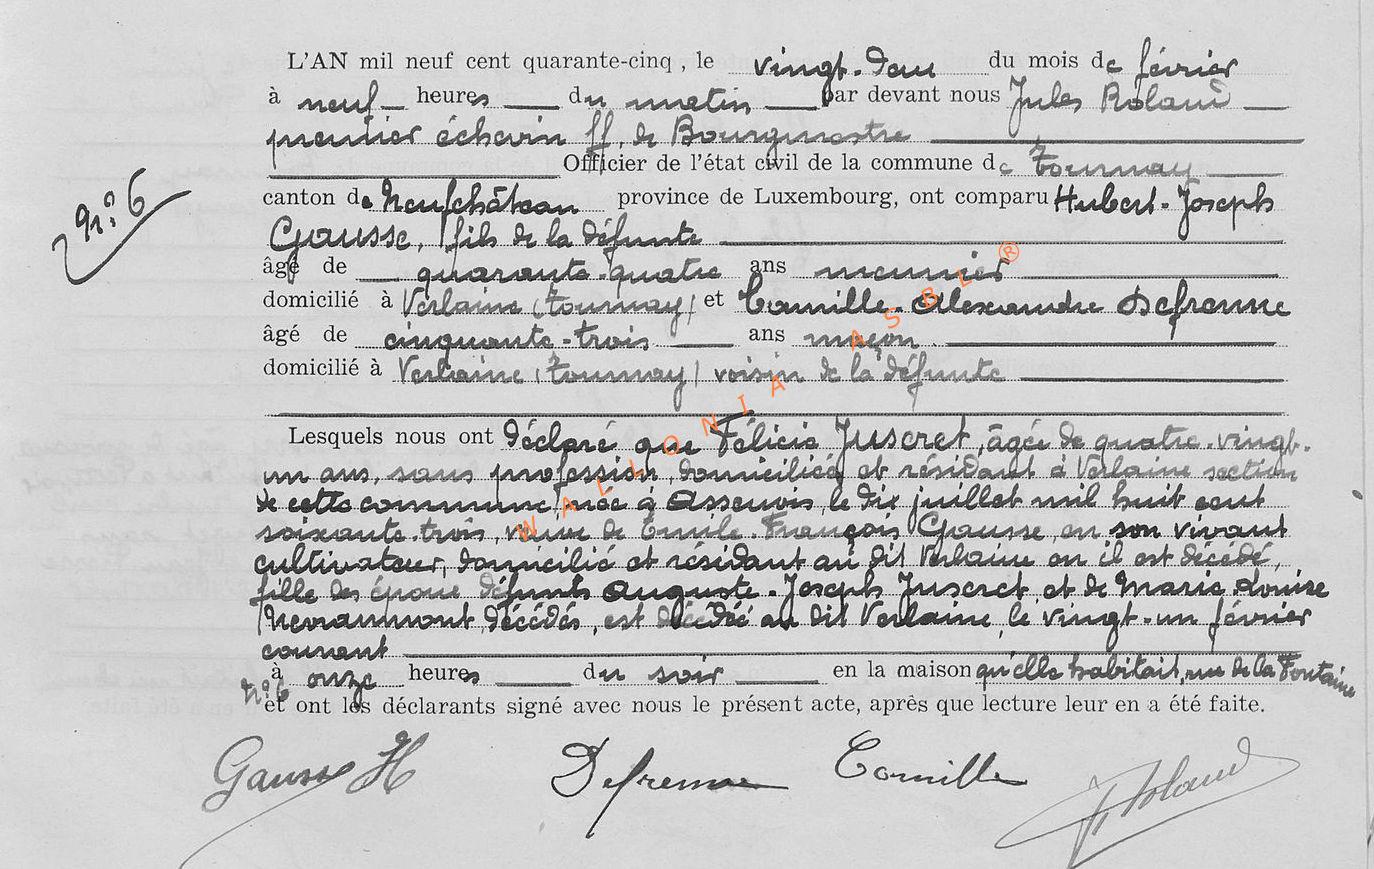 L'AN mil neuf cent quarante-cinq, le vingt-deux du mois de février
à neuf heures du matin par devant nous Jules Roland
premier échevin ff. de Bourgmestre
Officier de l'état civil de la commune de Tournay
N° 6
canton de Neufchâteau province de Luxembourg, ont comparu Hubert-Joseph
Gausse, fils de la défunte
âgé de quarante-quatre ans meunier
domicilié à Verlaine (Tournay) et Camille-Alexandre Defrenne
âgé de cinquante-trois ans maçon
domicilié à Verlaine (Tournay) voisin de la défunte
Lesquels nous ont déclaré que Félicie Juseret, âgée de quatre-vingt-
un ans, sans profession, domiciliée et résidant à Verlaine section
de cette commune, née à Assenois, le dix juillet mil huit cent
soixante-trois, veuve de Emile-François Gausse, en son vivant
cultivateur, domicilié et résidant au dit Verlaine ou il est décédé,
fille des époux défunts Auguste-Joseph Juseret et de Marie Louise
Nevraumont, décédés, est décédée au dit Verlaine, le vingt-un février
courant
à onze heures du soir en la maison qu'elle habitait, rue de la Fontaine
n° 6
et ont les déclarants signé avec nous le présent acte, après que lecture leur en a été faite.
Gausse H Defrenne Camille J Roland
WALLONIA ASBL ®